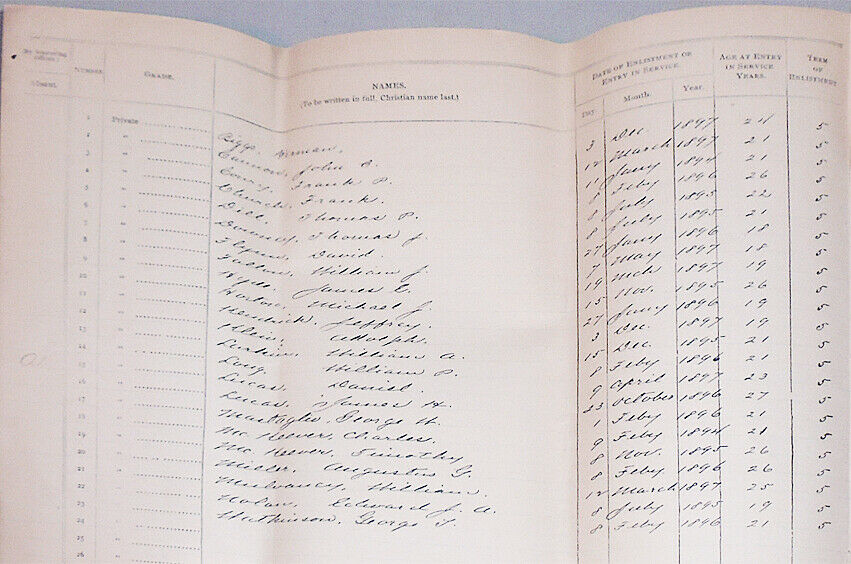 NUMBER GRADE. NAMES. DATE OF ENLISTMENT OR ENTRY IN SERVICE. AGE AT ENTRY IN SERVICE YEARS. TERM OF ENLISTMENT
Absent. (To be written in full, Christian name last.) Day Month. Year.
1 Private Herman, 3 Dec. 1897 24 5
2 " Cannon, John C. 12 March 1897 21 5
3 " Frank P. 11 Jany 1894 21 5
4 " Church, Frank. 8 Feby 1896 26 5
5 " Dill, Thomas P. 8 July 1895 22 5
6 " Downey, Thomas J. 8 July 1895 21 5
7 " Flynn, David. 27 Jany 1896 18 5
8 " Fallon, William J. 7 May 1897 18 5
9 " Hyde, James C. 19 Mch 1897 19 5
10 " Horton, Michael J. 15 Nov. 1895 26 5
11 " Hendrick, Jeffrey. 27 Jany 1896 19 5
12 " Klein, Adolph. 3 Dec. 1897 19 5
13 " Larkin, William A. 15 Dec. 1895 21 5
14 " Long, William P. 8 Feby 1896 21 5
15 " Lucas, Daniel. 9 April 1897 23 5
16 " Lucas, James H. 23 October 1896 27 5
17 " Mastaglio, George W. 1 Feby 1896 21 5
18 " McKeever, Charles. 9 Feby 1894 21 5
19 " McKeever, Timothy 8 Nov. 1895 26 5
20 " Augustus G. 8 Feby 1896 26 5
21 " Mulvaney, William. 12 March 1897 25 5
22 " Nolan, Edward J. A. 8 July 1895 19 5
23 " Hutchinson, George T. 8 Feby 1896 21 5
24 "
25
26